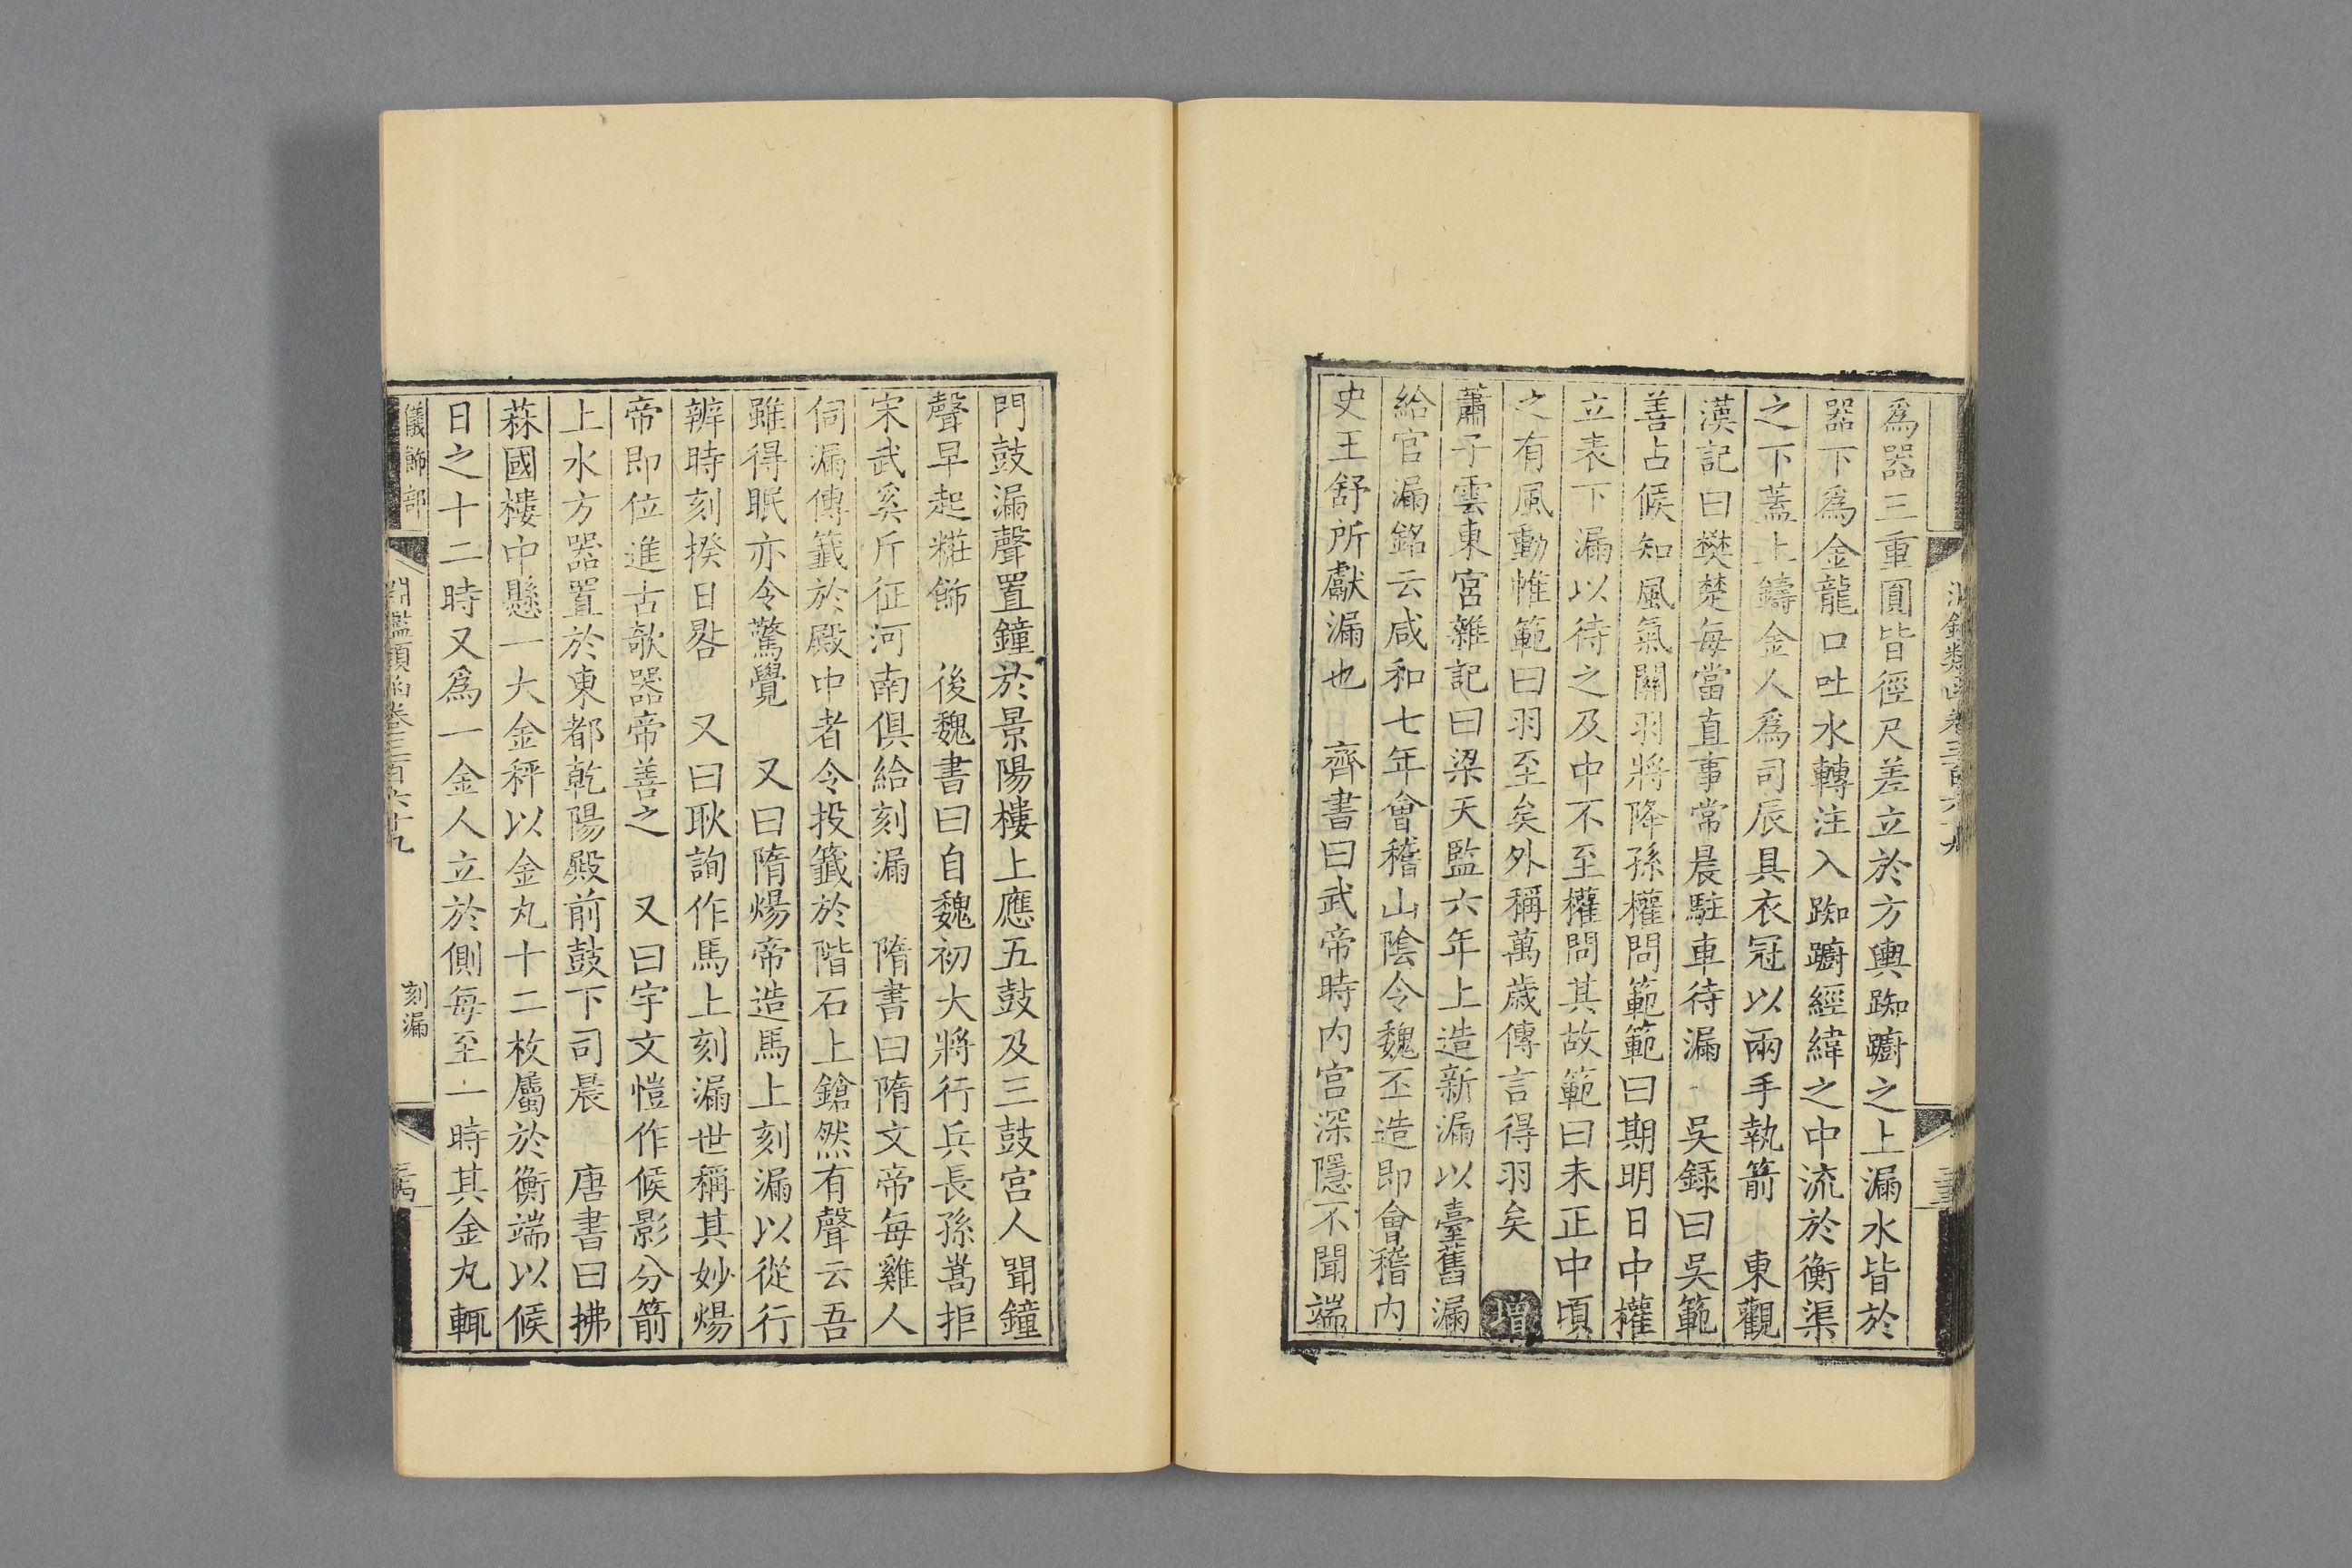 爲器三重圓皆徑尺差立於方輿踟躕之上漏水皆於
器下爲金龍口吐水轉注入踟躕經緯之中流於衡渠
之下蓋上鑄金人爲司辰具衣冠以兩手執箭　東觀
漢記曰樊楚每當直事常晨駐車待漏　吳録曰吳範
善占候知風氣關羽將降孫權問範範曰期明日中權
立表下漏以待之及中不至權問其故範曰未正中頃
之有風動帷範曰羽至矣外稱萬歲傳言得羽矣　增
蕭子雲東宮雜記曰梁天監六年上造新漏以臺舊漏
給官漏銘云咸和七年會稽山陰令魏丕造即會稽内
史王舒所獻漏也　齊書曰武帝時内宫深隱不聞端
門鼓漏聲置鐘於景陽樓上應五鼓及三鼓宫人聞鐘
聲早起糚飾　後魏書曰自魏初大將行兵長孫嵩拒
宋武奚斤征河南俱給刻漏　隋書曰隋文帝每雞人
伺漏傳籤於殿中者令投籤於階石上鎗然有聲云吾
雖得眠亦令驚覺　又曰隋煬帝造馬上刻漏以從行
辨時刻揆日晷　又曰耿詢作馬上刻漏世稱其妙煬
帝即位進古欹器帝善之　又曰宇文愷作候影分箭
上水方器置於東都乾陽殿前鼓下司晨　唐書曰拂
菻國樓中懸一大金秤以金丸十二枚屬於衡端以候
日之十二時又爲一金人立於側每至一時其金丸輒
儀飾部
淵鑑類函卷三百六十九
刻漏